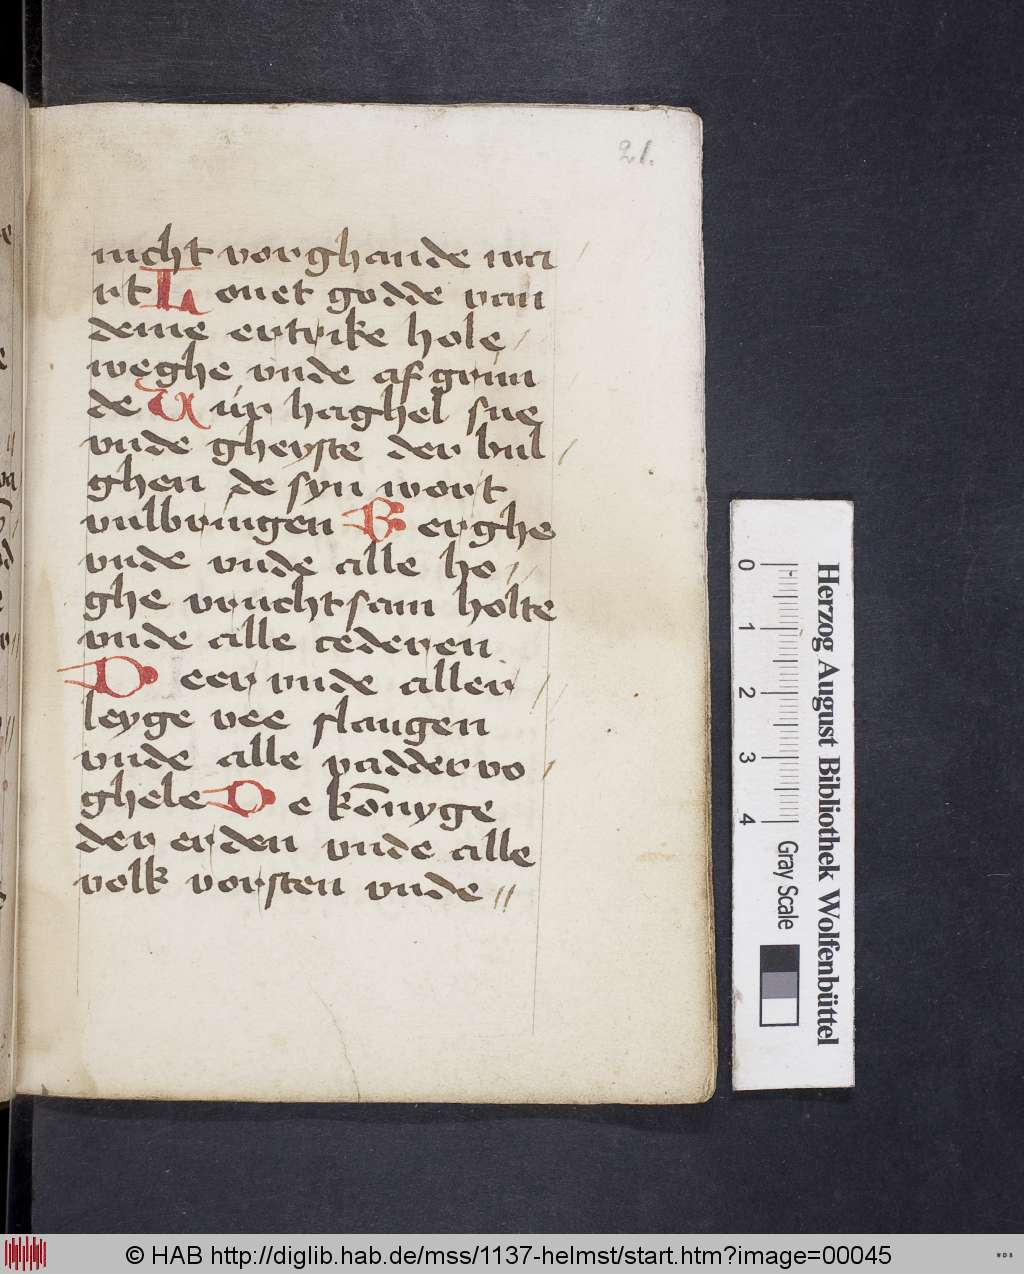 21.
nicht vorghande wa
rt Louet godde van
deme ertrike hole
weghe vnde afgrun
de Vür haghel sne
vnde gheyste der bul
ghen de syn wort
vulbringen Berghe
vnde vnde alle ho
ghe vruchtsam holte
vnde alle cederen
Deer vnde aller
leyge vee slangen
vnde alle vadder vo
ghele De kōnyge
der erden vnde alle
volk vorsten vnde
0 1 2 3 4
Gray Scale
Herzog August Bibliothek Wolfenbüttel
© HAB http://diglib.hab.de/mss/1137-helmst/start.htm?image=00045